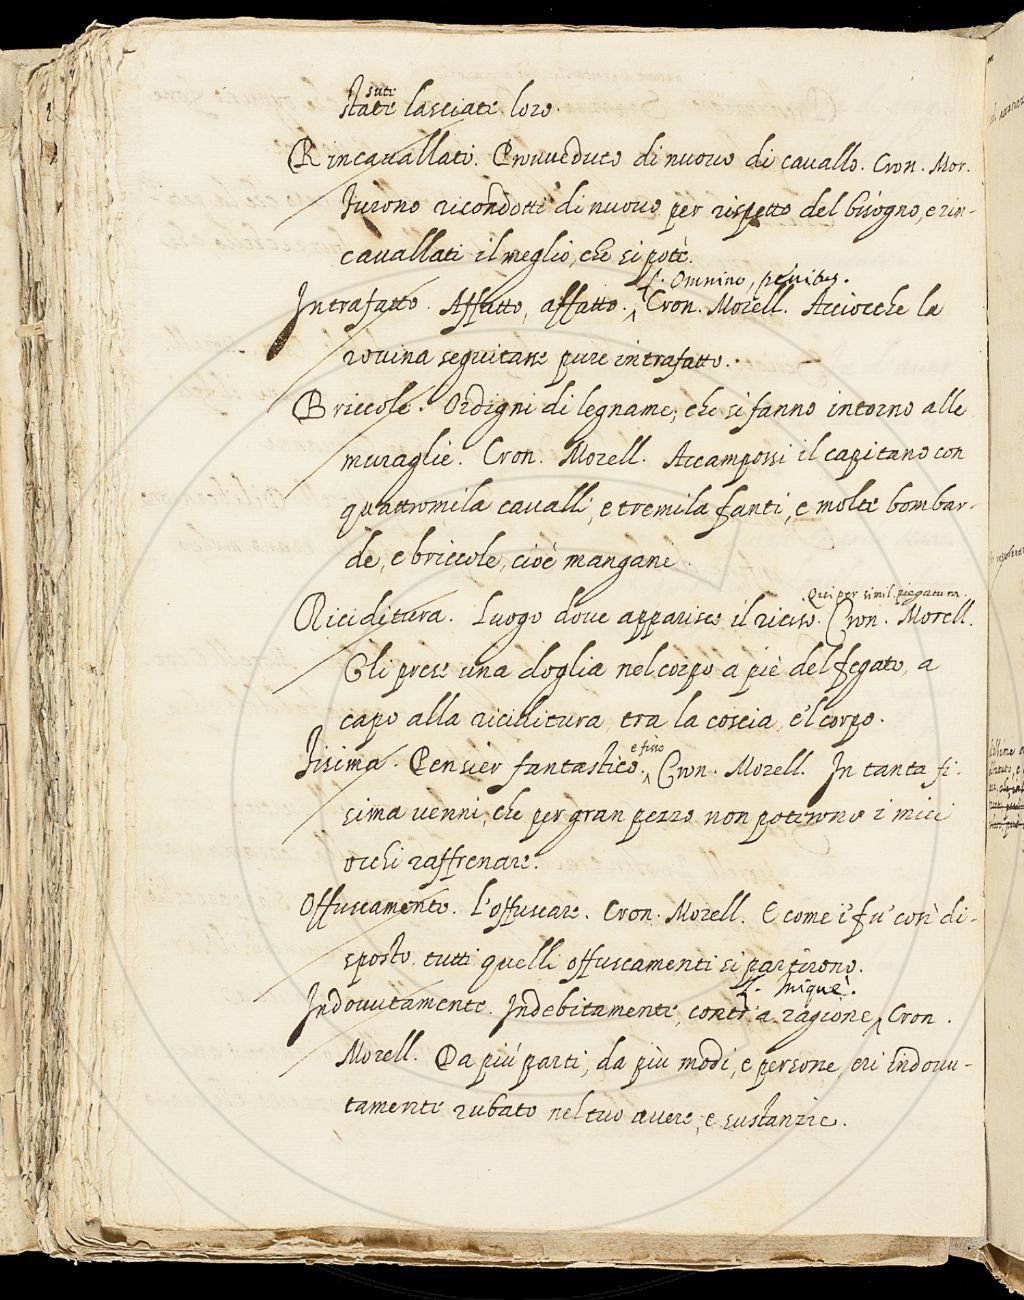 sute
state lasciate loro.
Rincavallati. Provveduto di nuovo di cavallo. Cron. Mor.
Furono ricondotti di nuovo per rispetto del bisogno, e rin-
cavallati il meglio, che si potè.
L. Omnino, penitus.
Intrafatto. Affatto, affatto. Cron. Morell. Acciocche la
rovina seguitasse pure intrafatto.
Briccole. Ordigni di legname, che si fanno intorno alle
muraglie. Cron. Morell. Accampossi il capitano con
quattromila cavalli, e tremila fanti, e molte bombar-
de, e briccole, cioè mangani.
Qui per simil. piegatura.
Riciditura. Luogo dove apparisce il riciso. Cron. Morell.
Gli prese una doglia nel corpo a piè del fegato, a
capo alla riciditura, tra la coscia, e'l corpo.
e fisso
Fisima. Pensier fantastico. Cron. Morell. In tanta fi-
sima venni, che per gran pezzo non potervono i miei
occhi raffrenare.
Offuscamento. L'offuscare. Cron. Morell. E come i' fu' così di-
sposto, tutti quelli offuscamenti si partirono.
L. Inique.
Indovutamente. Indebitamente, contr'a ragione, Cron.
Morell. Da più parti, da più modi, e persone, eri indovu-
tamente rubato nel tuo avere, e sustanzie.